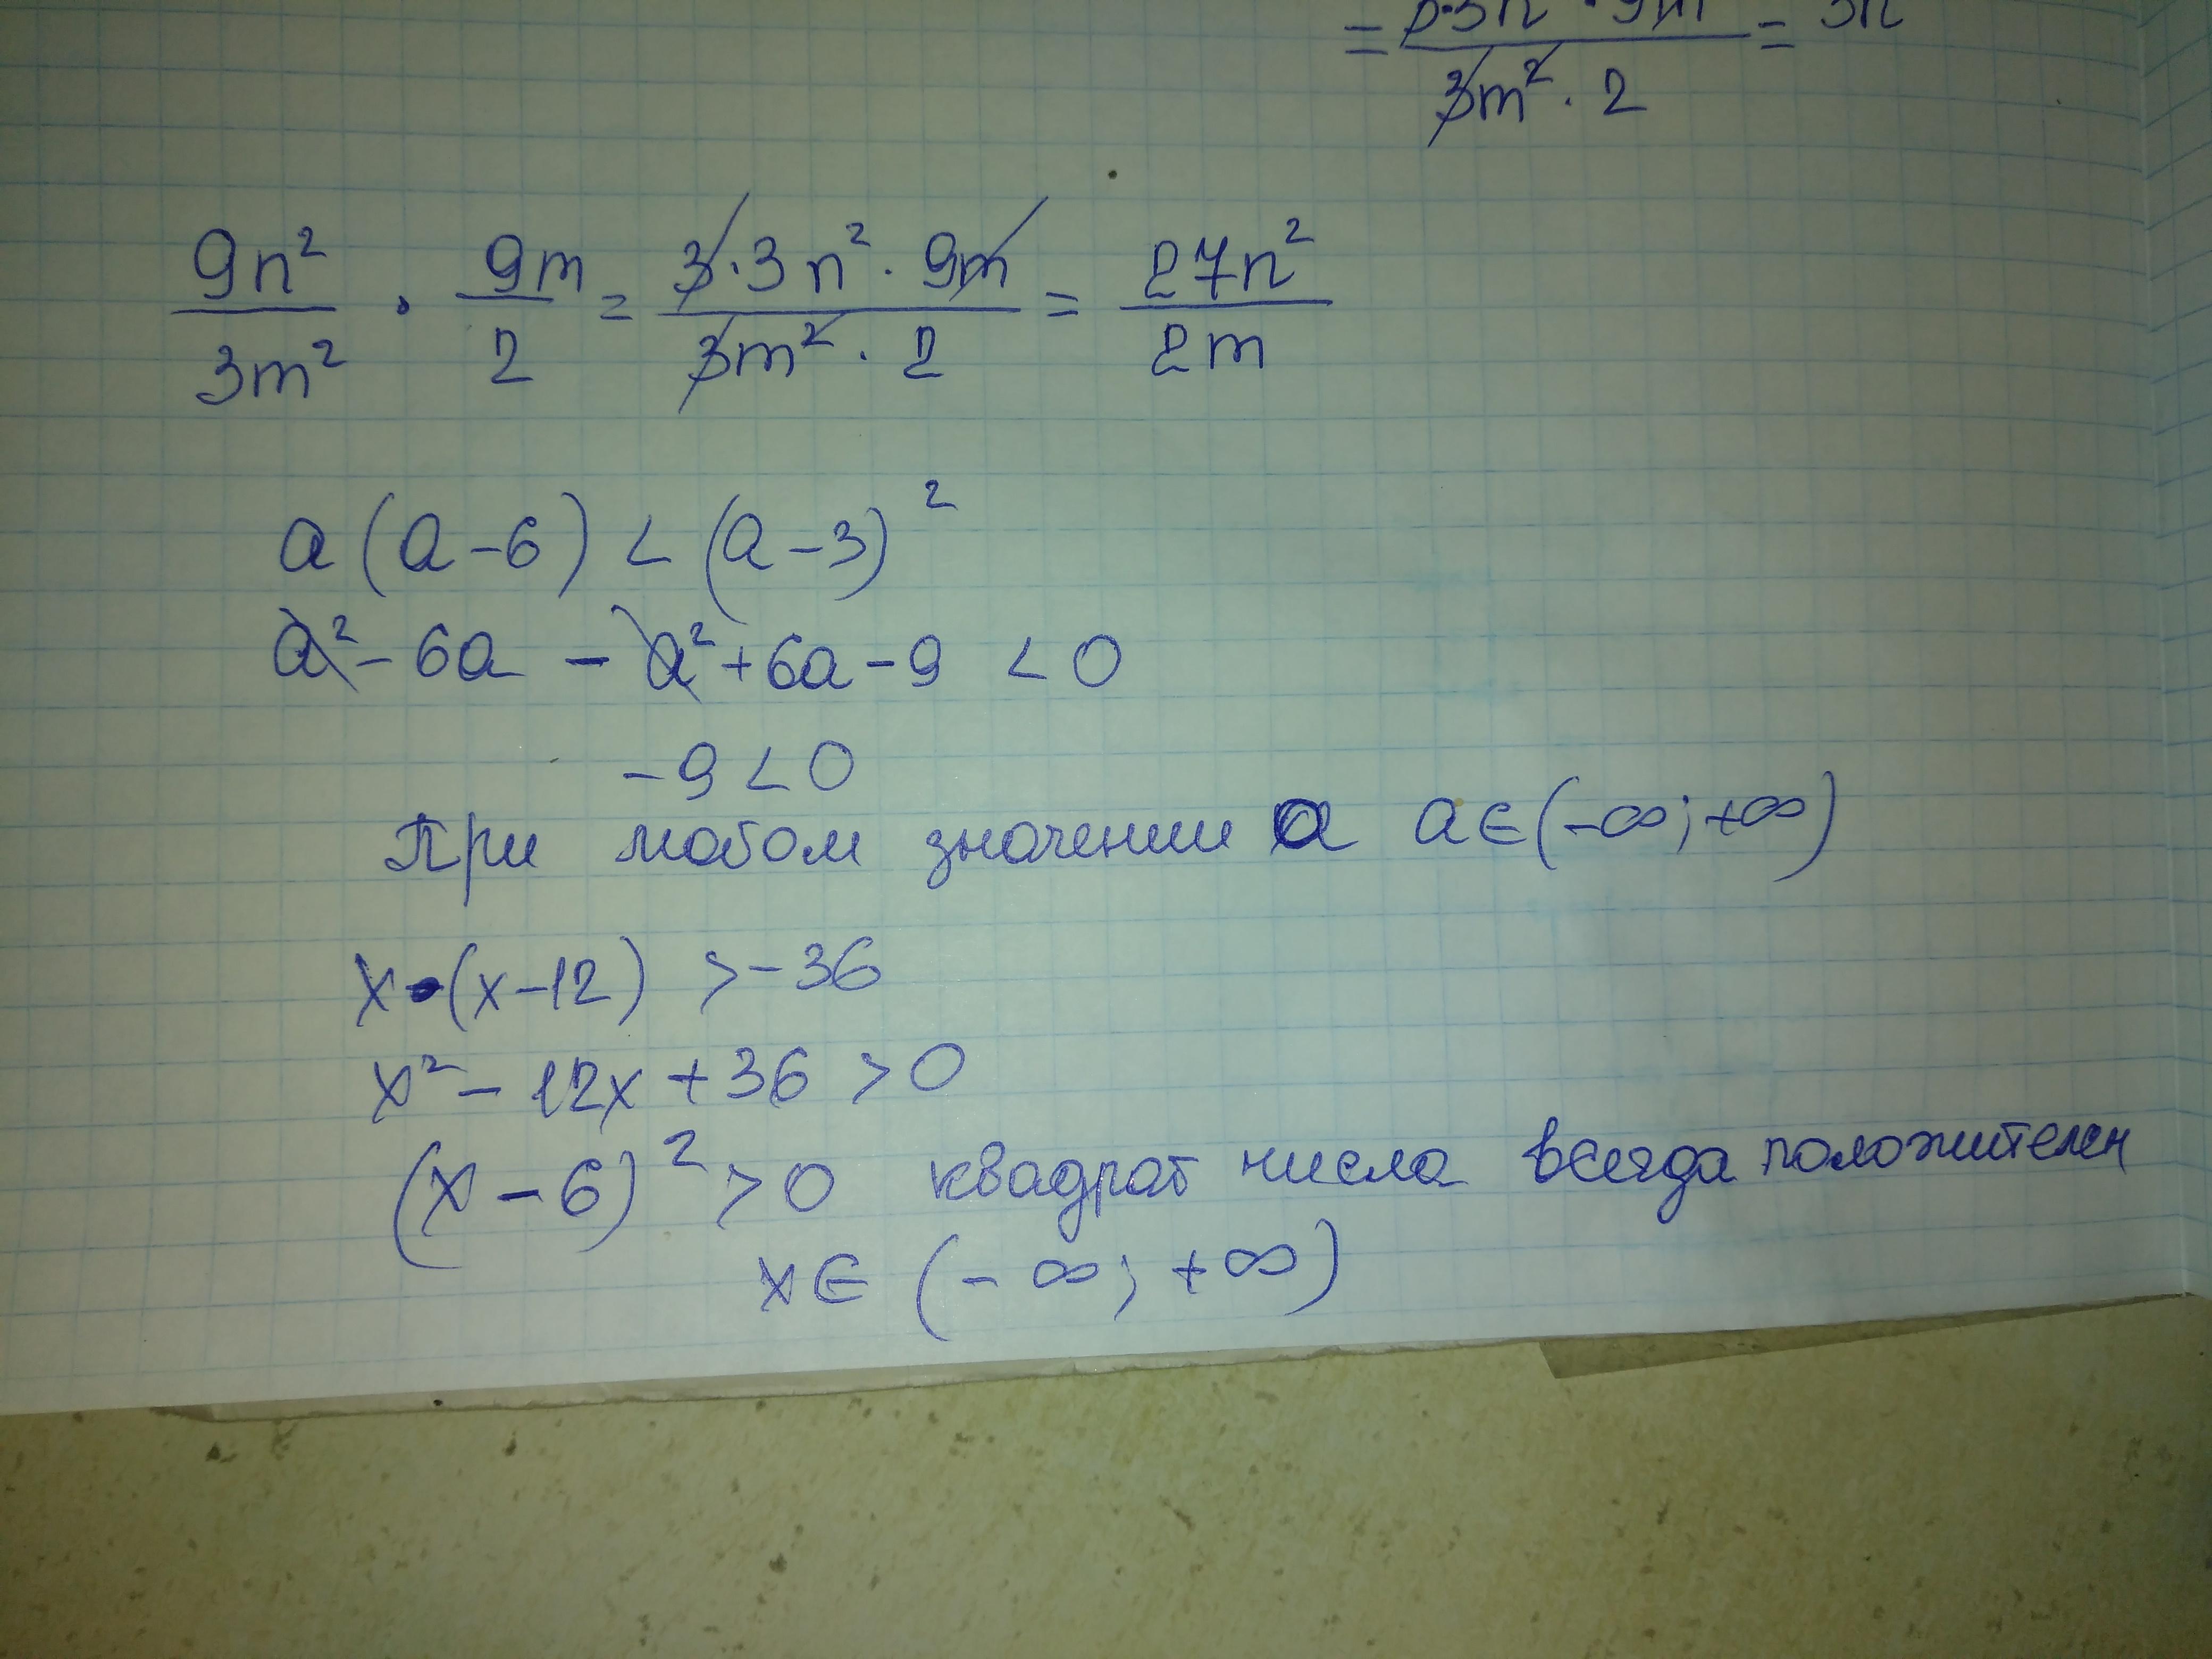 = 3·3n² · 9m / 3m² · 2 =
9n²/3m² · 9m/2 = 3·3n² · 9m / 3m² · 2 = 27n²/2m
a(a-6) < (a-3)²
a² - 6a - a² + 6a - 9 < 0
-9 < 0
При любом значении a a∈(-∞; +∞)
x·(x-12) > -36
x² - 12x + 36 > 0
(x - 6)² > 0 квадрат числа всегда положителен
x ∈ (-∞; +∞)